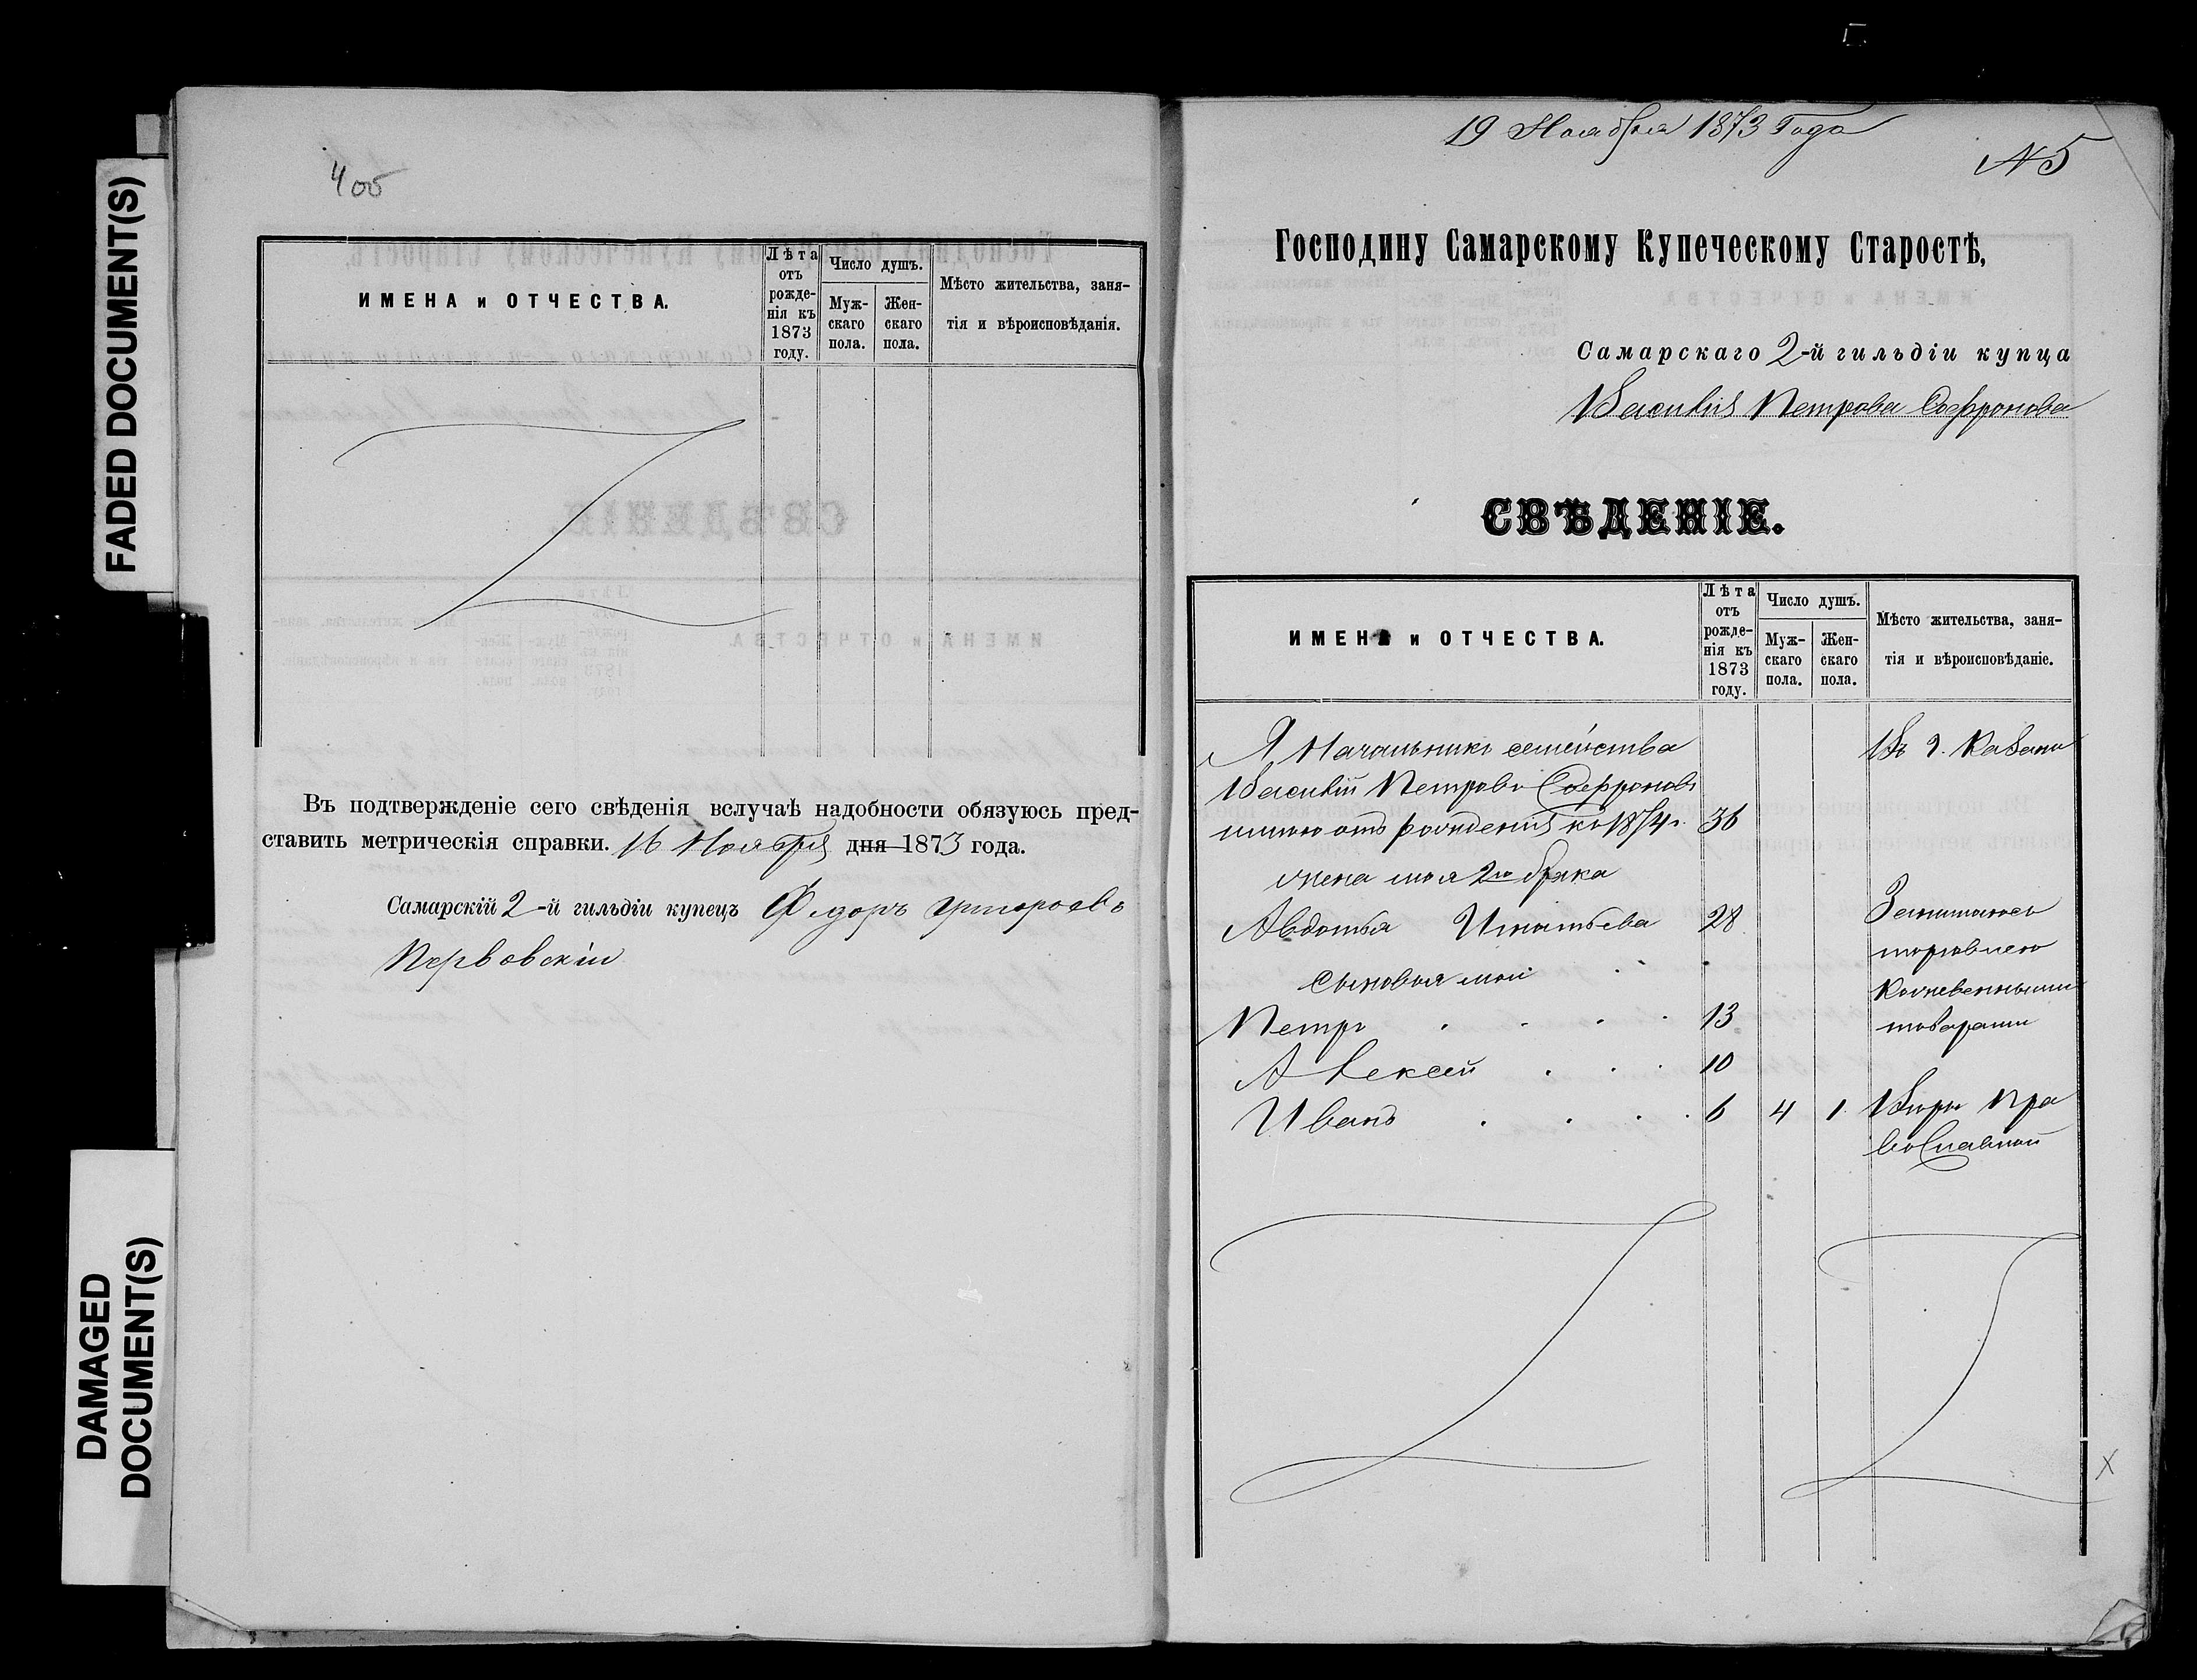 FADED DOCUMENT(S)
DAMAGED
DOCUMENT(S)
400
ИМЕНА и ОТЧЕСТВА.
Лѣта отъ рожденія къ 1873 году.
Число душъ.
Мужскаго пола.
Женскаго пола.
Мѣсто жительства, заня-
тія и вѣроисповѣданія.
Въ подтвержденіе сего свѣденія вслучаѣ надобности обязуюсь пред-
ставить метрическія справки. 16 Ноября дня 1873 года.
Самарскій 2-й гильдіи купецъ Федоръ
Перьвовскіи
19 Ноября 1873 Года
N 5
Господину Самарскому Купеческому Старостѣ,
Самарскаго 2-й гильдіи купца
Василія Петрова Софронова
СВѢДЕНІЕ.
ИМЕНА и ОТЧЕСТВА.
Лѣта отъ рожденія къ 1873 году.
Число душъ.
Мужскаго пола.
Женскаго пола.
Мѣсто жительства, заня-
тія и вѣроисповѣданіе.
Я Начальникъ семейства Въ г. Казани
Василій Петровъ Софроновъ
отъ рожденія къ 1874 г. 36
жена моя 2го брака
Авдотья Игнатьева 28 Занимаюсь
торговлею
сыновья мои
Кожевенными
Петръ 13 товарами
Алексей 10
Иванъ 6 4 1 Веры Пра
вославной